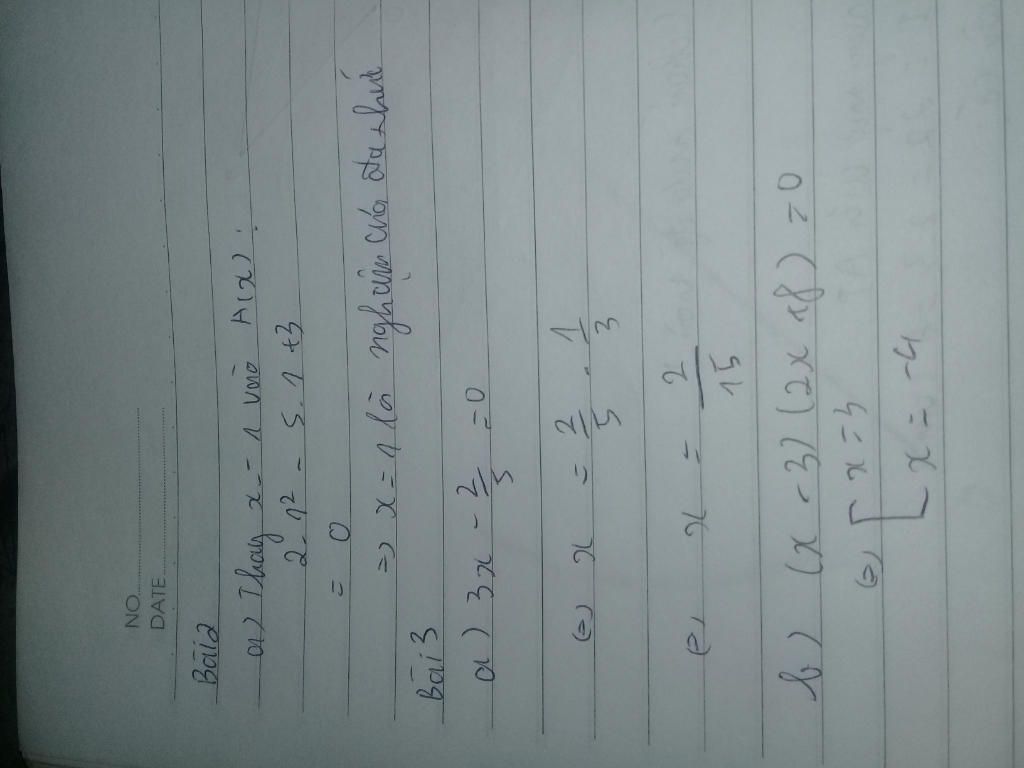 NO.
DATE
Bài 2
a) Thay x = 1 vào A(x):
2.1² - 5.1 + 3
= 0
=> x = 1 là nghiệm của đa thức
Bài 3
a) 3x - 2/5 = 0
(=) x = 2/5 . 1/3
(=) x = 2/15
b) (x - 3)(2x + 8) = 0
(=) [ x = 3
[ x = -4